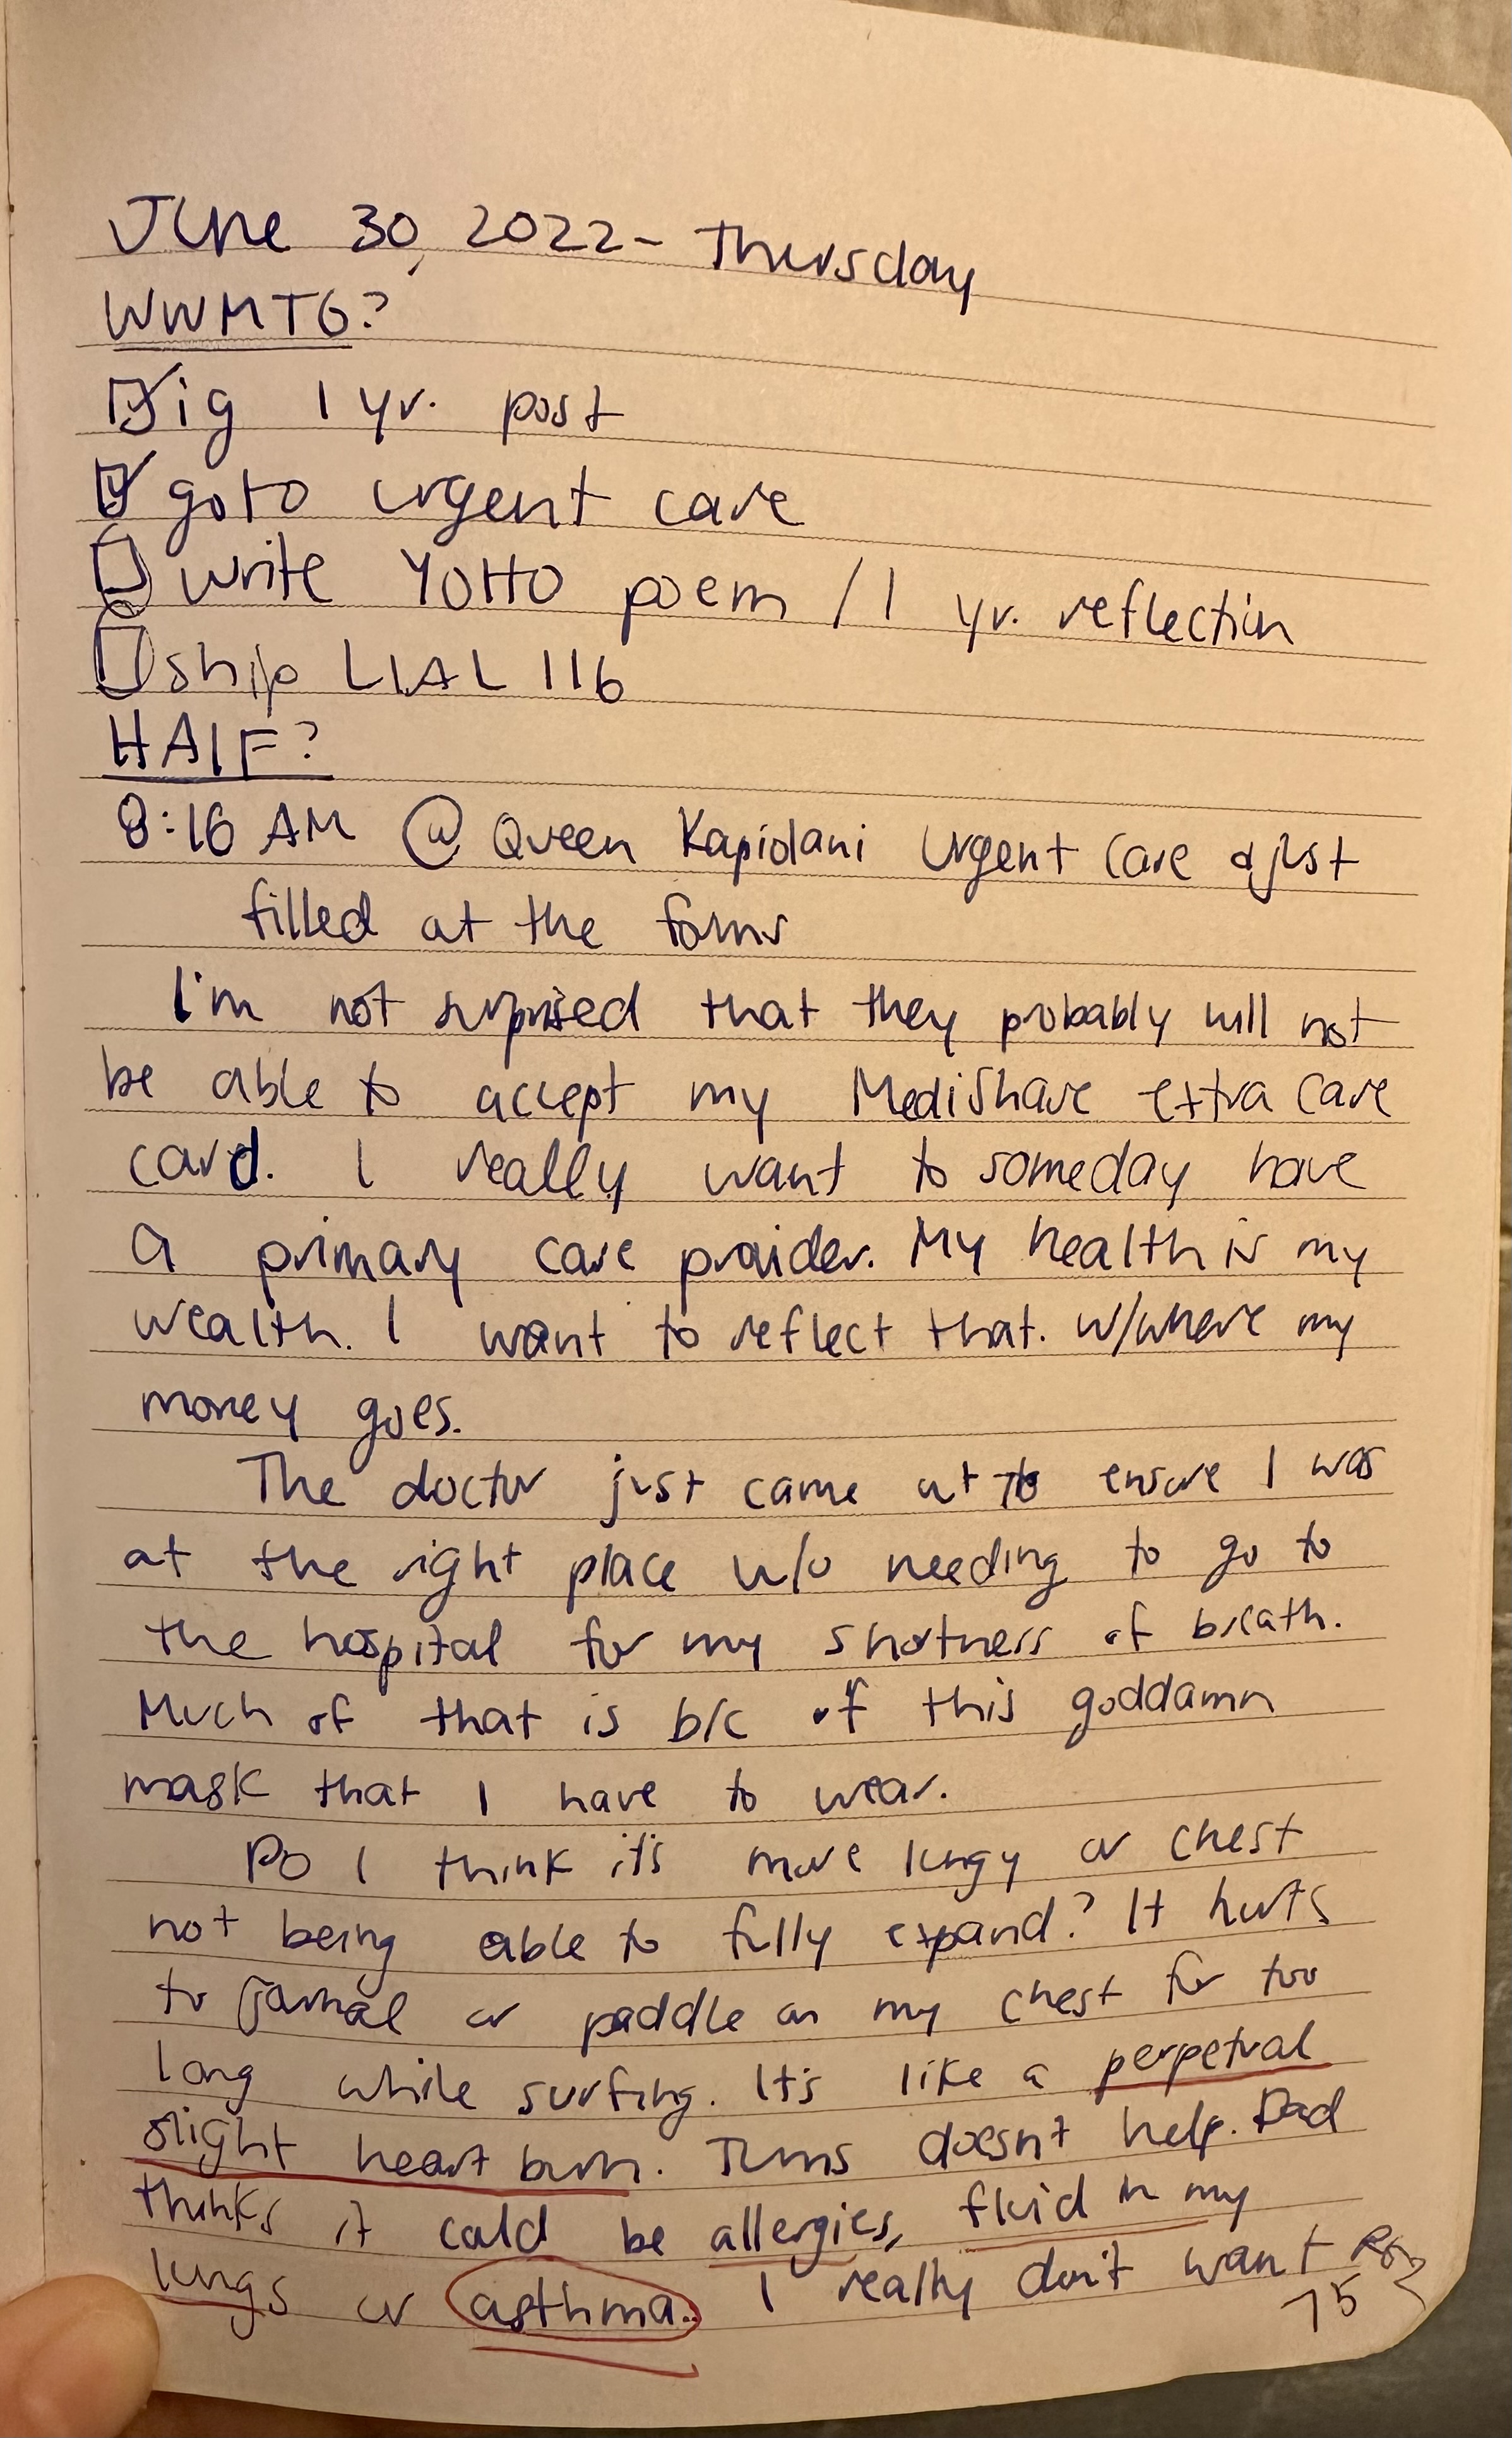 June 30, 2022 - Thursday
WWMTG?
ig 1 yr. post
go to urgent care
write YOTTO poem / 1 yr. reflection
ship LIAL 116
HAIF?
8:16 AM @ Queen Kapiolani Urgent Care & just
filled out the forms
I'm not surprised that they probably will not
be able to accept my MediShare extra care
card. I really want to someday have
a primary care provider. My health is my
wealth. I want to reflect that. w/where my
money goes.
The doctor just came out to ensure I was
at the right place w/o needing to go to
the hospital for my shortness of breath.
Much of that is b/c of this goddamn
mask that I have to wear.
Do I think it's more lungy or chest
not being able to fully expand? It hurts
to journal or paddle on my chest for too
long while surfing. It's like a perpetual
slight heart burn. Tums doesn't help. Dad
thinks it could be allergies, fluid in my
lungs or asthma.. I really don't want
75